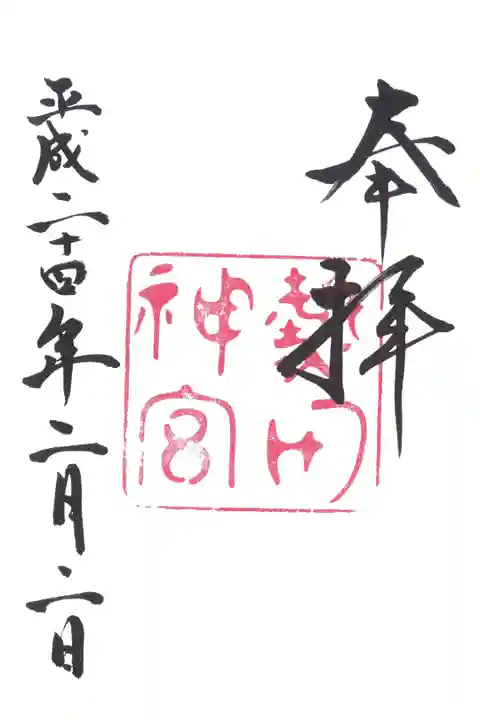 奉拝
熱田神宮
平成二十四年二月二日